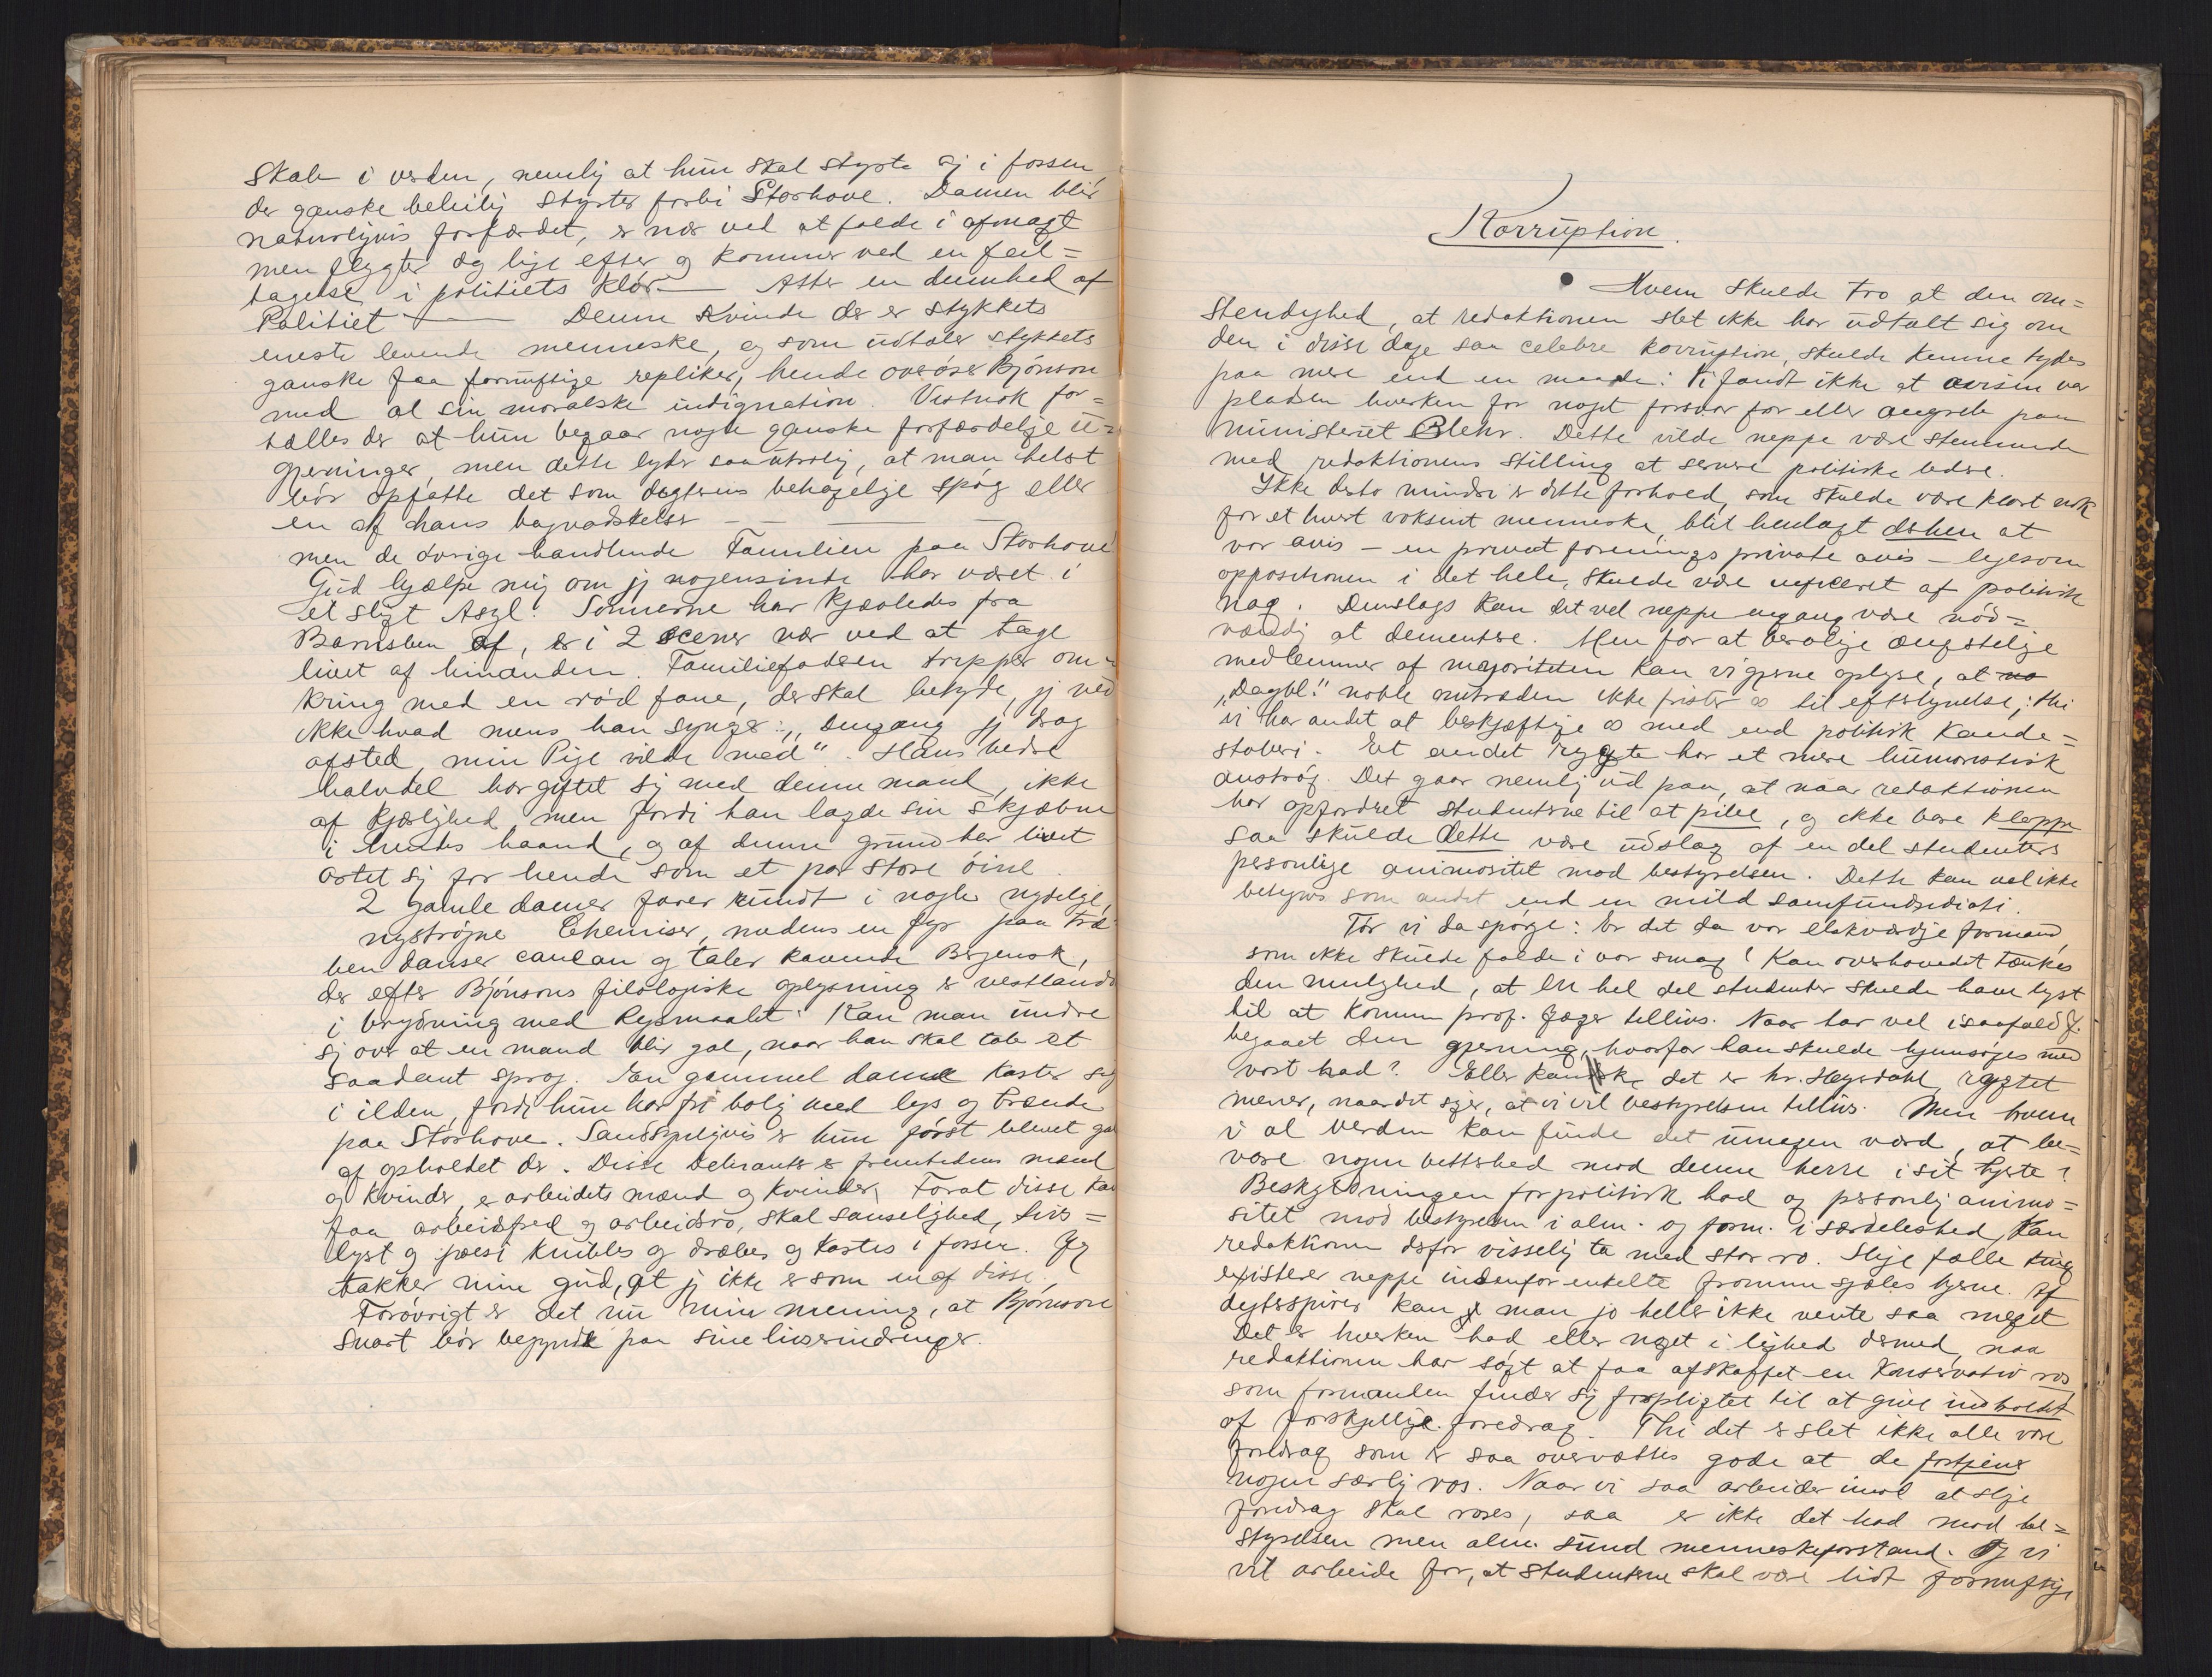 Skab i verden, nemlig at hun skal styrte sig i fossen,
der ganske beleilig styrter forbi Storhove. Damen blir
naturligvis forfærdet, er nær ved at falde i afmagt
men flygter dog lige efter og kommer ved en feil=
tagelse i politiets klør. — Atter en dumhed af
Politiet — Denne Kvinde der er stykkets
eneste levende menneske, og som udtaler stykkets
ganske faa fornuftige repliker, hende overøser Bjørnson
med al sin moralske indignation. Vistnok for=
tælles der at hun begaar nogle ganske forfærdelige u=
gjerninger, men dette lyder saa utrolig, at man helst
bør opfatte det som digterens behagelige spøg eller
en af hans bagvadskelser — — —
men de øvrige handlende Familien paa Storhove
Gud hjælpe mig om jeg nogensinde har været i
et sligt Asyl! Sønnerne har kjævledes fra
Barnsben af, er i 2 scener nær ved at tage
livet af hinanden. Familiefaderen tripper om=
kring med en rød fane, der skal betyde, jeg ved
ikke hvad mens han synger: „Dengang jeg drog
afsted, min Pige vilde med". Hans bedre
halvdel har giftet sig med denne mand, ikke
af kjærlighed, men fordi han lagde sin skjæbne
i hendes haand, og af denne grund har livet
artet sig for hende som et par store øine.
2 gamle damer farer rundt i nogle nydelige,
nystrøgne Chemiser, medens en fyr paa træ
ben danser cancan og taler ravende Bergensk,
der efter Bjørnsons filologiske oplysning er vestlandsk
i brydning med Rigsmaalet. Kan man undre
sig over at en mand blir gal, naar han skal tale et
saadant sprog. En gammel dame kaster sig
i ilden, fordi hun har fri bolig med lys og brænde
paa Storhove. Sandsynligvis er hun først blevet gal
af opholdet der. Disse Debranter er fremtidens mænd
og kvinder, er arbeidets mænd og kvinder. Forat disse kan
faa arbeidsfred og arbeidsro, skal sanselighed, livs=
lyst og poesi knibles og dræbes og kastes i fossen. Jeg
takker min gud, at jeg ikke er som en af disse.
Forøvrigt er det nu min mening, at Bjørnson
snart bør begynde paa sine livserindringer.
Korruption.
Hvem skulde tro at den om=
stendighed, at redaktionen slet ikke har udtalt sig om
den i disse dage saa celebre korruption, skulde kunne tydes
paa mere end en maade: Vi fandt ikke at avisen var
pladsen hverken for noget forsvar for eller angreb paa
ministeriet Blehr. Dette vilde neppe være stemmende
med redaktionens stilling at servere politiske ledere.
Ikke desto mindre er dette forhold, som skulde være klart nok
for et hvert voksent menneske, blit henlagt derhen at
vor avis — en privat forenings private avis — ligesom
oppositionen i det hele, skulde være inficeret af politisk
nag. Denslags kan det vel neppe engang være nød=
vendig at dementere. Men for at berolige ængstelige
medlemmer af majoriteten kan vi gjerne oplyse, at
„Dagbl."s noble optræden ikke frister os til efterlignelse; thi
vi har andet at beskjæftige os med end politisk kande=
støberi. Et andet rygte har et mere humoristisk
anstrøg. Det gaar nemlig ud paa, at naar redaktionen
har opfordret studenterne til at pibe, og ikke bare klappe
saa skulde dette være udslag af en del studenters
personlige animositet mod bestyrelsen. Dette kan vel ikke
betegnes som andet end en mild samfundsidioti.
Tør vi da spørge: Er det da vor elskværdige formand,
som ikke skulde falde i vor smag? Kan overhovedet tænkes
den mulighed, at en hel del studenter skulde have lyst
til at komme prof. Jæger tillivs. Naar har vel isaafald J.
begaaet den gjerning, hvorfor han skulde hjemsøges med
vort had? Eller kanske det er hr. Heyerdahl, rygtet
mener, naar det siger, at vi vil bestyrelsen tillivs. Men hvem
i al verden kan finde det umagen værd, at be=
vare nogen bettshed mod denne herre i sit hjerte?
Beskyldningen for politisk had og personlig animo=
sitet mod bestyrelsen i alm. og form. i særdeleshed, kan
redaktionen derfor visselig ta med stor ro. Slige fæle ting
existerer neppe indenfor enkelte fromme sjæles hjerne. Af
digterspirer kan man jo heller ikke vente saa meget
Det er hverken had eller noget i lighed dermed, naar
redaktionen har søgt at faa afskaffet en konservativ ros
som formanden finder sig forpligtet til at give indholdet
af forskjellige foredrag. Thi det er slet ikke alle vore
foredrag som er saa overvættes gode at de fortjener
nogen særlig ros. Naar vi saa arbeider imod at slige
foredrag skal roses, saa er ikke det had mod be=
styrelsen men alm. sund menneskeforstand. Og vi
vil arbeide for, at studenterne skal være lidt fornuftige